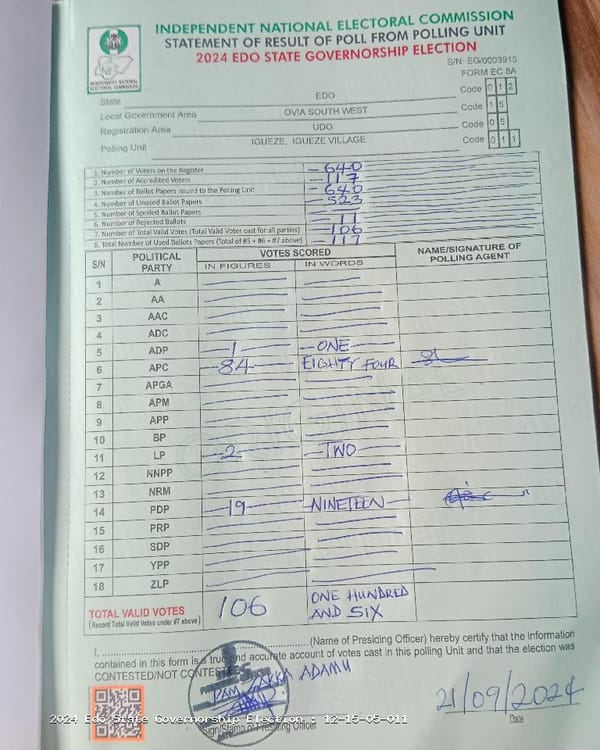 INDEPENDENT NATIONAL ELECTORAL COMMISSION
STATEMENT OF RESULT OF POLL FROM POLLING UNIT
2024 EDO STATE GOVERNORSHIP ELECTION
S/N: EG/0003915
FORM EC 8A
INEC
INDEPENDENT NATIONAL ELECTORAL COMMISSION
State EDO Code 0 1 2
Local Government Area OVIA SOUTH WEST Code 1 5
Registration Area UDO Code 0 5
Polling Unit IGUEZE, IGUEZE VILLAGE Code 0 1 1
1. Number of Voters on the Register 640
2. Number of Accredited Voters 117
3. Number of Ballot Papers issued to the Polling Unit 640
4. Number of Unused Ballot Papers 523
5. Number of Spoiled Ballot Papers
6. Number of Rejected Ballots 11
7. Number of Total Valid Votes (Total Valid Votes cast for all parties) 106
8. Total Number of Used Ballots Papers (Total of #5 + #6 + #7 above) 117
S/N POLITICAL PARTY VOTES SCORED NAME/SIGNATURE OF POLLING AGENT
IN FIGURES IN WORDS
1 A
2 AA
3 AAC
4 ADC
5 ADP 1 ONE
6 APC 84 EIGHTY FOUR
7 APGA
8 APM
9 APP
10 BP
11 LP 2 TWO
12 NNPP
13 NRM
14 PDP 19 NINETEEN
15 PRP
16 SDP
17 YPP
18 ZLP
TOTAL VALID VOTES 106 ONE HUNDRED AND SIX
(Record Total Valid Votes under #7 above)
I, (Name of Presiding Officer) hereby certify that the information
contained in this form is a true and accurate account of votes cast in this polling unit and that the election was
CONTESTED/NOT CONTESTED
ADAMU
21/09/2024
Sign/Stamp of Presiding Officer
Date
2024 Edo State Governorship Election : 12-15-05-011